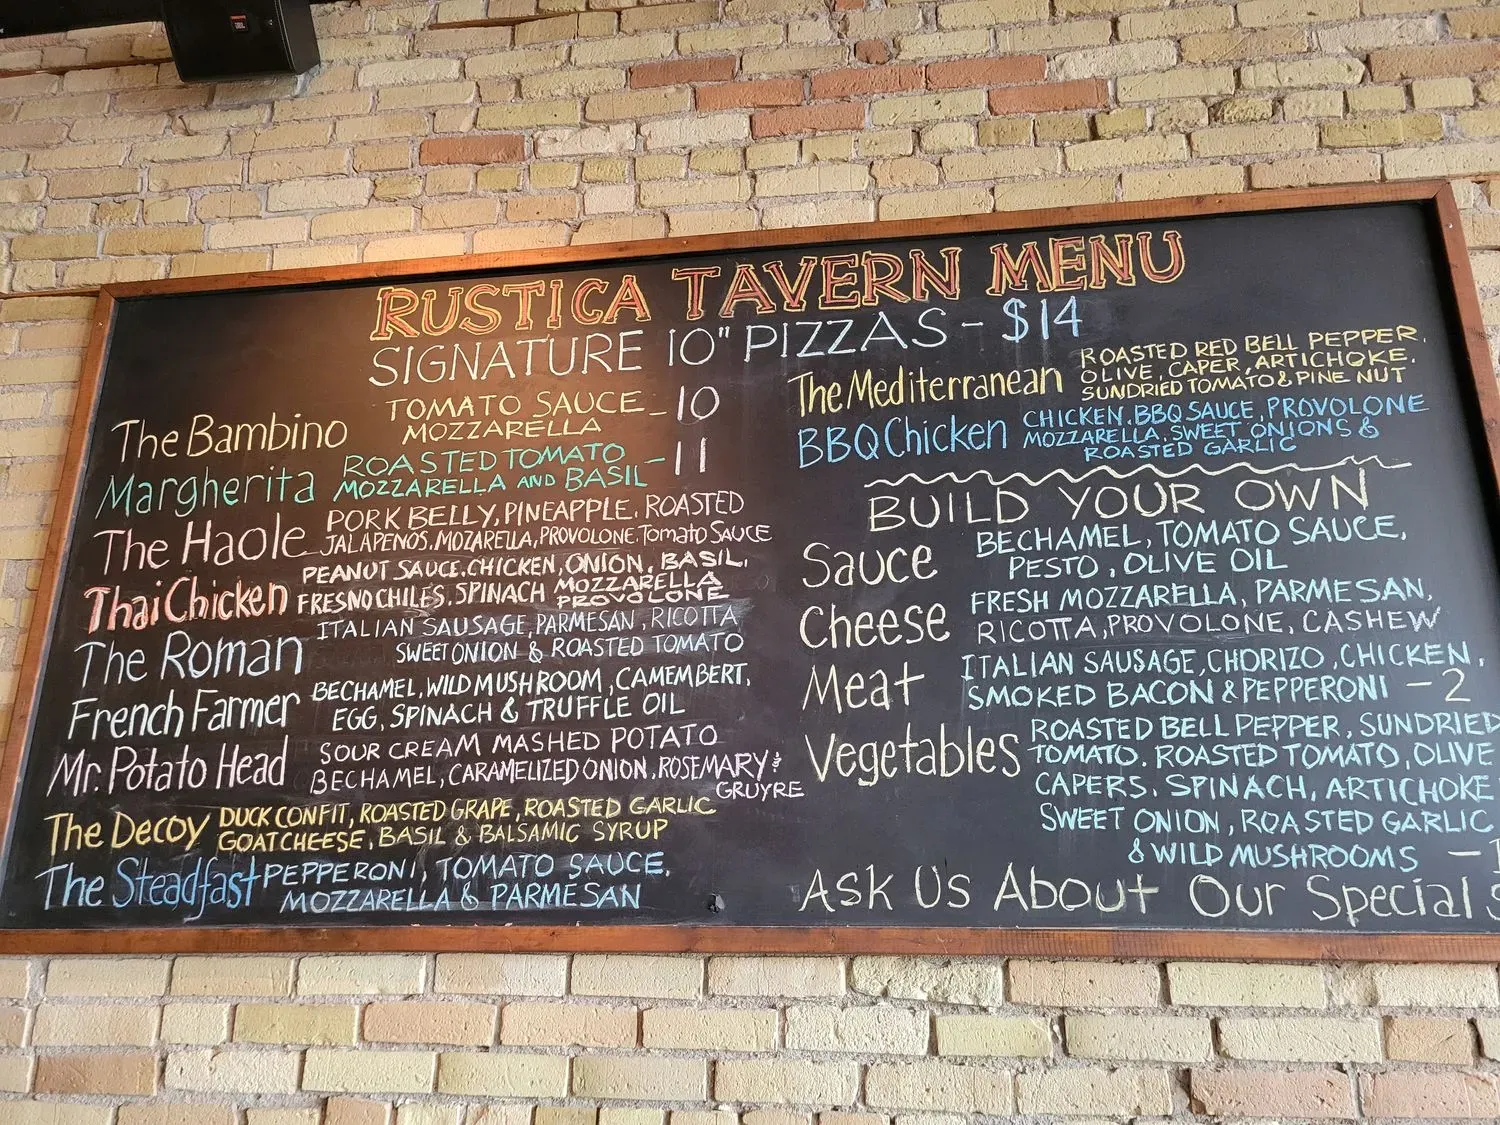 JBL
RUSTICA TAVERN MENU
SIGNATURE 10" PIZZAS - $14
The Bambino TOMATO SAUCE - 10
MOZZARELLA
Margherita ROASTED TOMATO - 11
MOZZARELLA AND BASIL
The Haole PORK BELLY, PINEAPPLE, ROASTED
JALAPENOS, MOZARELLA, PROVOLONE, Tomato SAUCE
Thai Chicken PEANUT SAUCE, CHICKEN, ONION, BASIL,
FRESNO CHILES, SPINACH MOZZARELLA
PROVOLONE
The Roman ITALIAN SAUSAGE, PARMESAN, RICOTTA
SWEET ONION & ROASTED TOMATO
French Farmer BECHAMEL, WILD MUSHROOM, CAMEMBERT,
EGG, SPINACH & TRUFFLE OIL
Mr. Potato Head SOUR CREAM MASHED POTATO
BECHAMEL, CARAMELIZED ONION, ROSEMARY &
GRUYRE
The Decoy DUCK CONFIT, ROASTED GRAPE, ROASTED GARLIC
GOAT CHEESE, BASIL & BALSAMIC SYRUP
The Steadfast PEPPERONI, TOMATO SAUCE,
MOZZARELLA & PARMESAN
The Mediterranean ROASTED RED BELL PEPPER,
OLIVE, CAPER, ARTICHOKE,
SUNDRIED TOMATO & PINE NUT
BBQ Chicken CHICKEN, BBQ SAUCE, PROVOLONE
MOZZARELLA, SWEET ONIONS &
ROASTED GARLIC
BUILD YOUR OWN
Sauce BECHAMEL, TOMATO SAUCE,
PESTO, OLIVE OIL
Cheese FRESH MOZZARELLA, PARMESAN,
RICOTTA, PROVOLONE, CASHEW
Meat ITALIAN SAUSAGE, CHORIZO, CHICKEN,
SMOKED BACON & PEPPERONI - 2
Vegetables ROASTED BELL PEPPER, SUNDRIED
TOMATO, ROASTED TOMATO, OLIVE
CAPERS, SPINACH, ARTICHOKE
SWEET ONION, ROASTED GARLIC
& WILD MUSHROOMS -
Ask Us About Our Specials